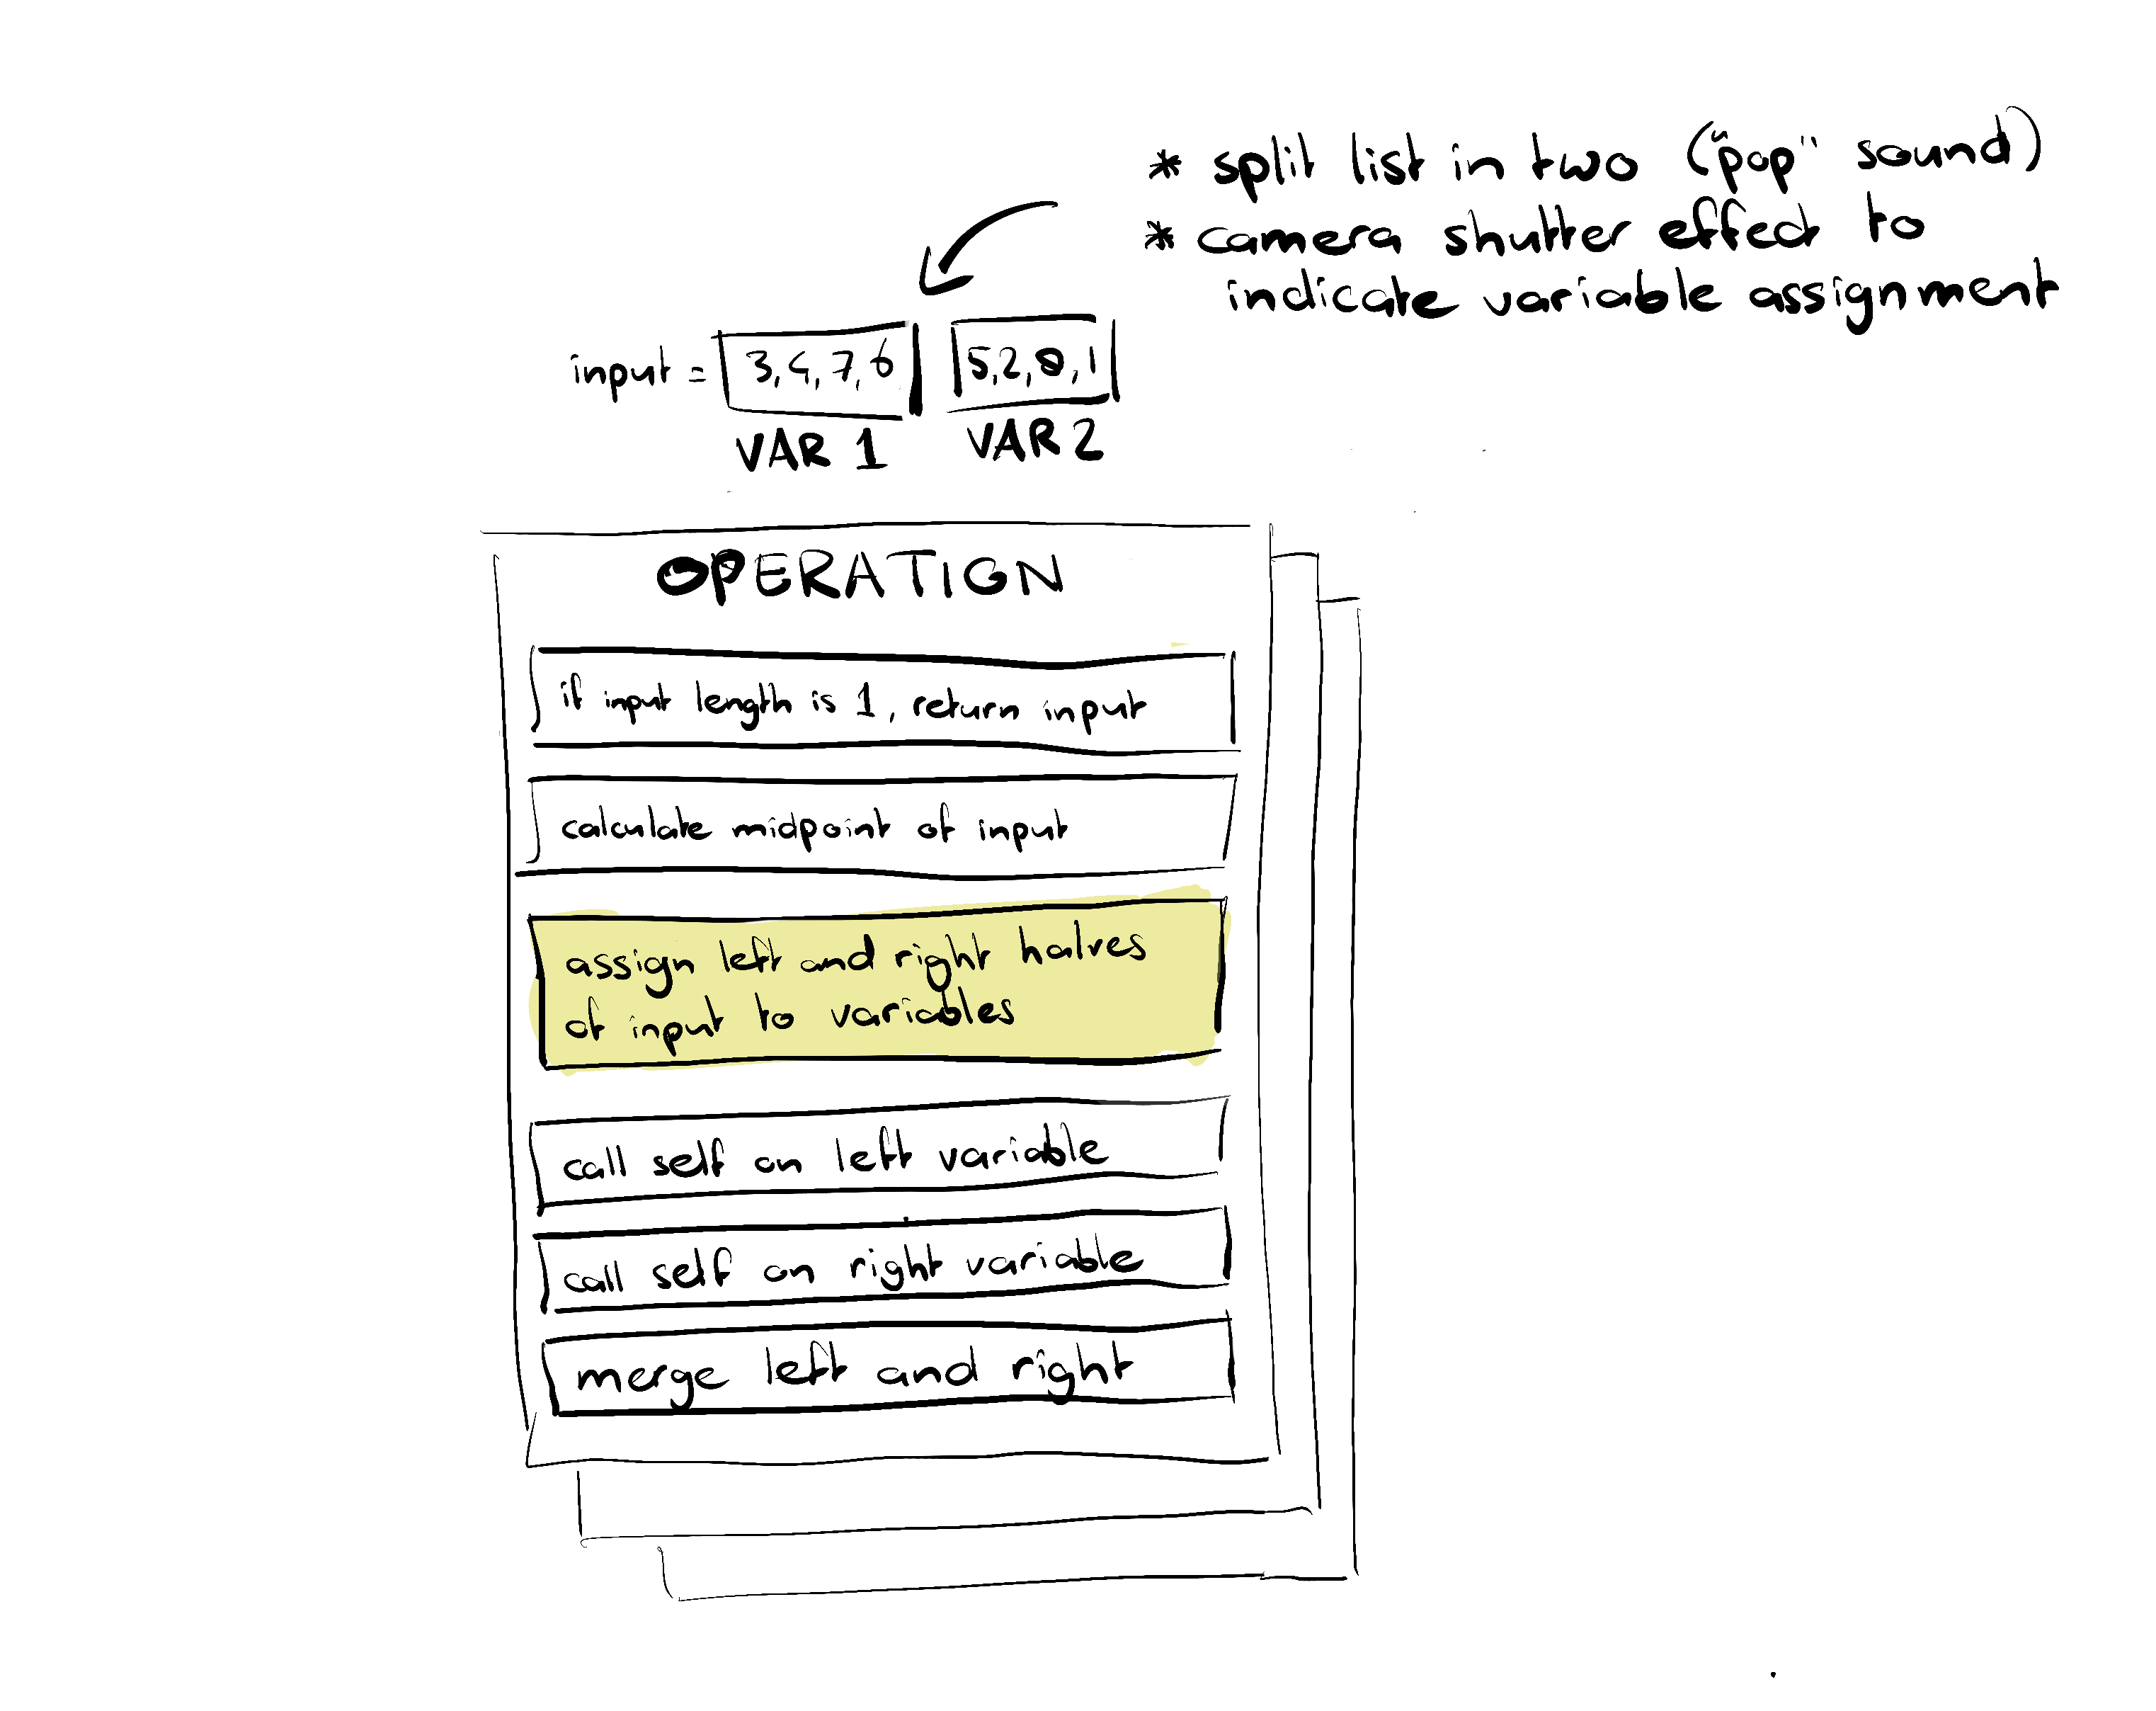 * split list in two ("pop" sound)
* camera shutter effect to
indicate variable assignment
input = 3,4,7,6 5,2,8,1
VAR 1 VAR 2
OPERATION
if input length is 1, return input
calculate midpoint of input
assign left and right halves
of input to variables
call self on left variable
call self on right variable
merge left and right